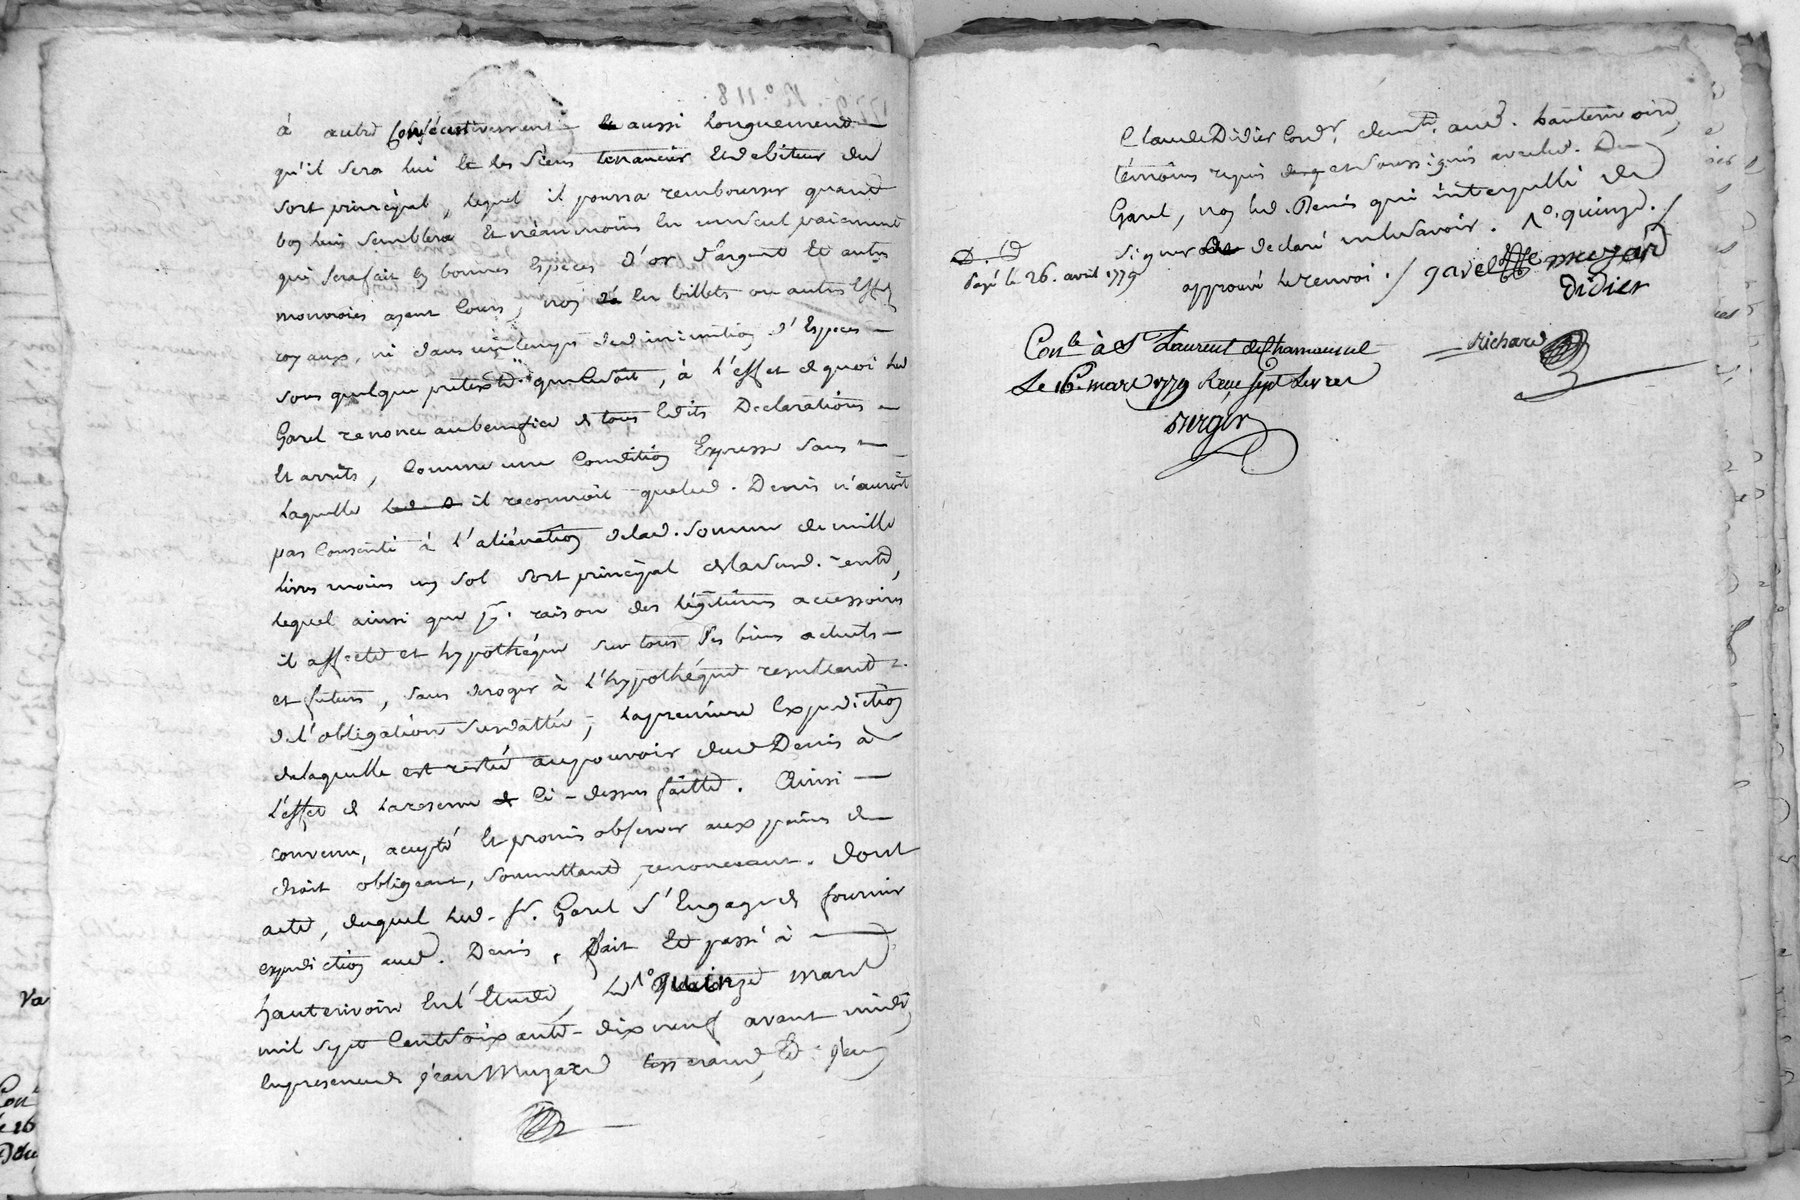 à autre consécutivement & aussi longuement
qu'il sera lui et les siens tenancier et debiteur du
sort principal, lequel il pourra rembourser quand
bon lui semblera et néanmoins en un seul paiement
qui sera fait en bonnes espèces d'or d'argent et autres
monnoies ayent cours, non en billets ou autres effets
royaux, ni dans un temps de diminution d'espèces
sous quelque pretexte que ce soit, à l'effet de quoi led
Garel renonce au benefice de tous édits declarations
et arrêts, comme une condition expresse sans
laquelle il reconnoit que led. Denis n'auroit
pas consenti à l'aliénation de lad. somme de mille
livres moins un sol sort principal de la susd. rente,
lequel ainsi que pr. raison des légitimes accessoires
il affecte et hypothéque sur tous ses biens actuels
et futurs, sans deroger à l'hypothéque resultante
de l'obligation susdattée, la premiere expedition
de laquelle est restée au pouvoir dud Denis à
l'effet de la reserve ci-dessus faitte. Ainsi
convenu, accepté et promis observer aux peines de
droit obligeant, soumettant, renonceant. dont
acte, duquel led. sr. Garel s'engage de fournir
expedition aud. Denis, fait et passé à
hauterivoire en l'étude, le 1° quinze mars
mil sept cent soixante-dix neuf avant midi,
en presence de jean Muzard tisserand, et jean
Claude Didier cordr. demt. aud. hauterivoire,
témoins requis et soussignés avec led.
Garel, non led. Denis qui interpellé de
signer a declaré ne le savoir. 1° quinze. /
approuvé le renvoi. / garel muzard
didier
D. D
Payé le 26. avril 1779
Conlé à St Laurent de Chamousset
Le 16 mars 1779 Reçu sept Livres
Richard